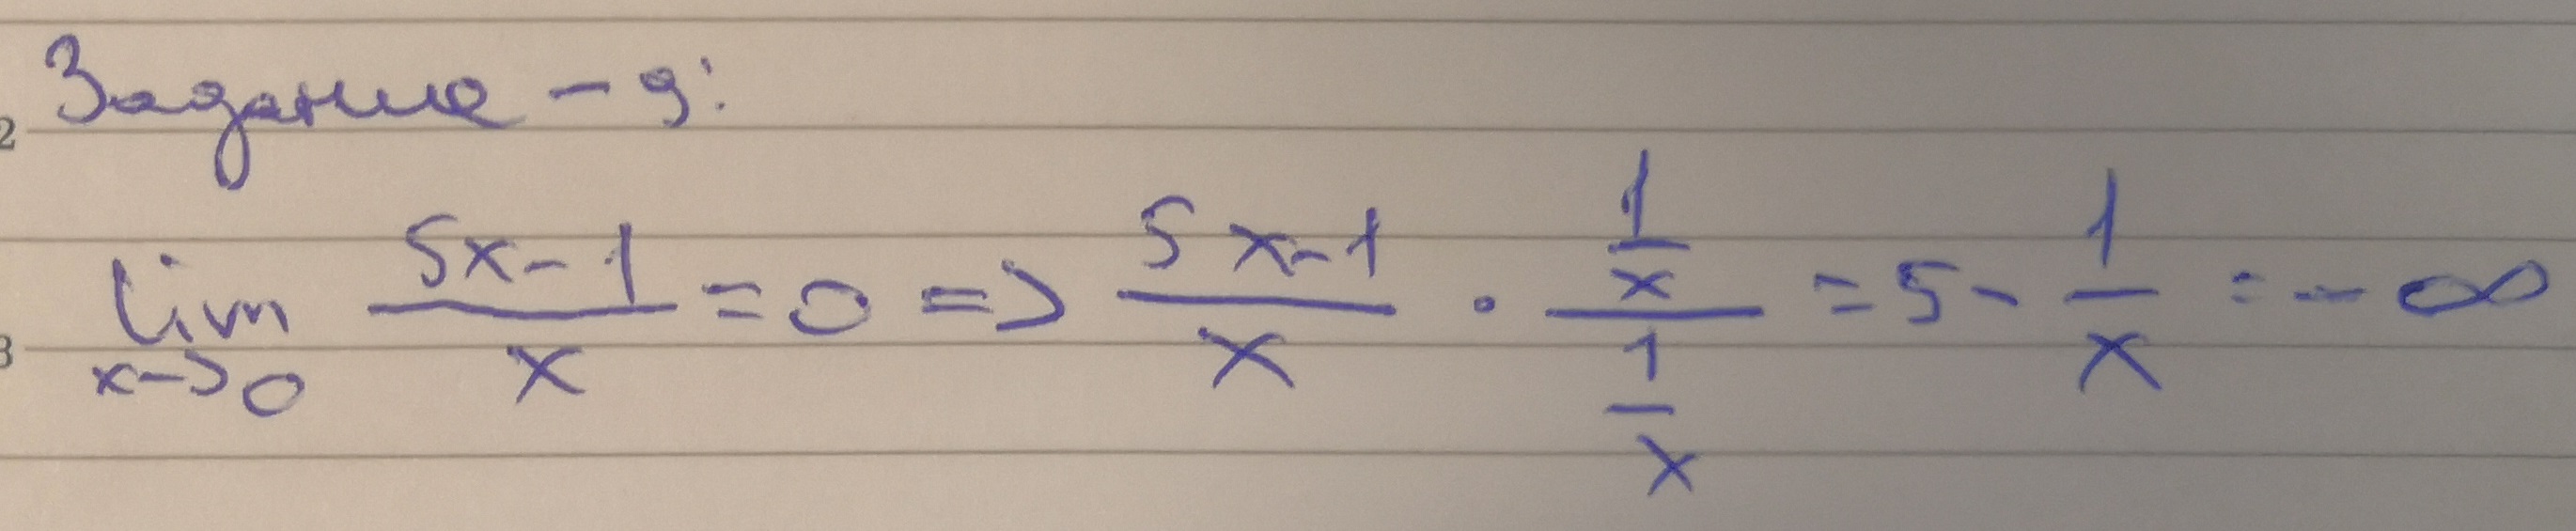 Задание - 9:
lim x->0 (5x-1)/x = 0 => (5x-1)/x · (1/x)/(1/x) = 5 - 1/x = -∞
2
3